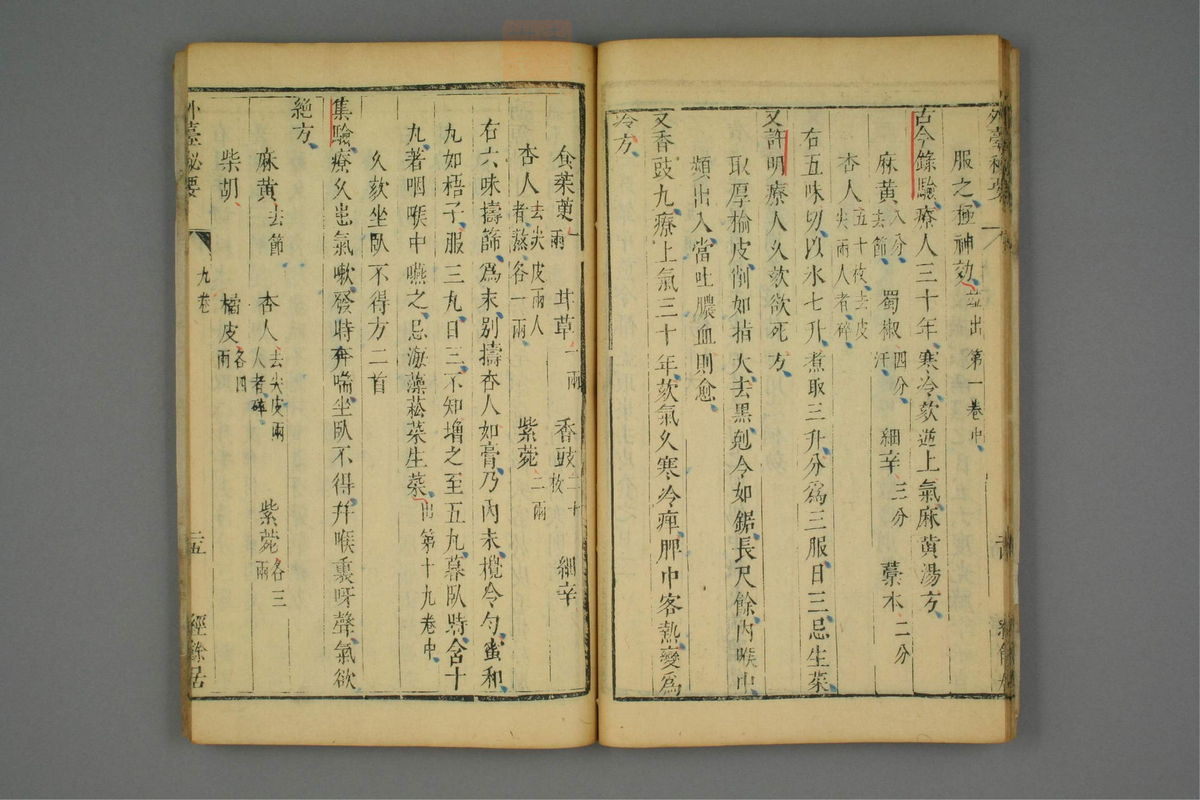 外臺秘要
服之極神効並出第一卷中
古今錄驗療人三十年寒冷欬逆上氣麻黃湯方
麻黃八分去節 蜀椒四分汗 細辛三分 藁本二分
杏人五十枚去皮尖兩人者碎
右五味切以水七升煮取三升分爲三服日三忌生菜
又許明療人久欬欲死方
取厚榆皮削如指大去黑剋令如鋸長尺餘內喉中
頻出入當吐膿血則愈
又香豉丸療上氣三十年欬氣久寒冷痺脾中客熱變爲
冷方
食茱萸一兩 甘草一兩 香豉二十枚 細辛
杏人去尖皮兩人者熬各一兩 紫菀二兩
右六味擣篩爲末別擣杏人如膏乃內末攪令勻蜜和
丸如梧子服三丸日三不知增之至五丸暮臥時含十
丸著咽喉中嚥之忌海藻菘菜生菜出第十九卷中
久欬坐臥不得方二首
集驗療久患氣嗽發時奔喘坐臥不得幷喉裏呀聲氣欲
絶方
麻黃去節 杏人去尖皮兩人者碎 紫菀各三兩
柴胡 橘皮各四兩
外臺秘要
九卷
二五
經餘居